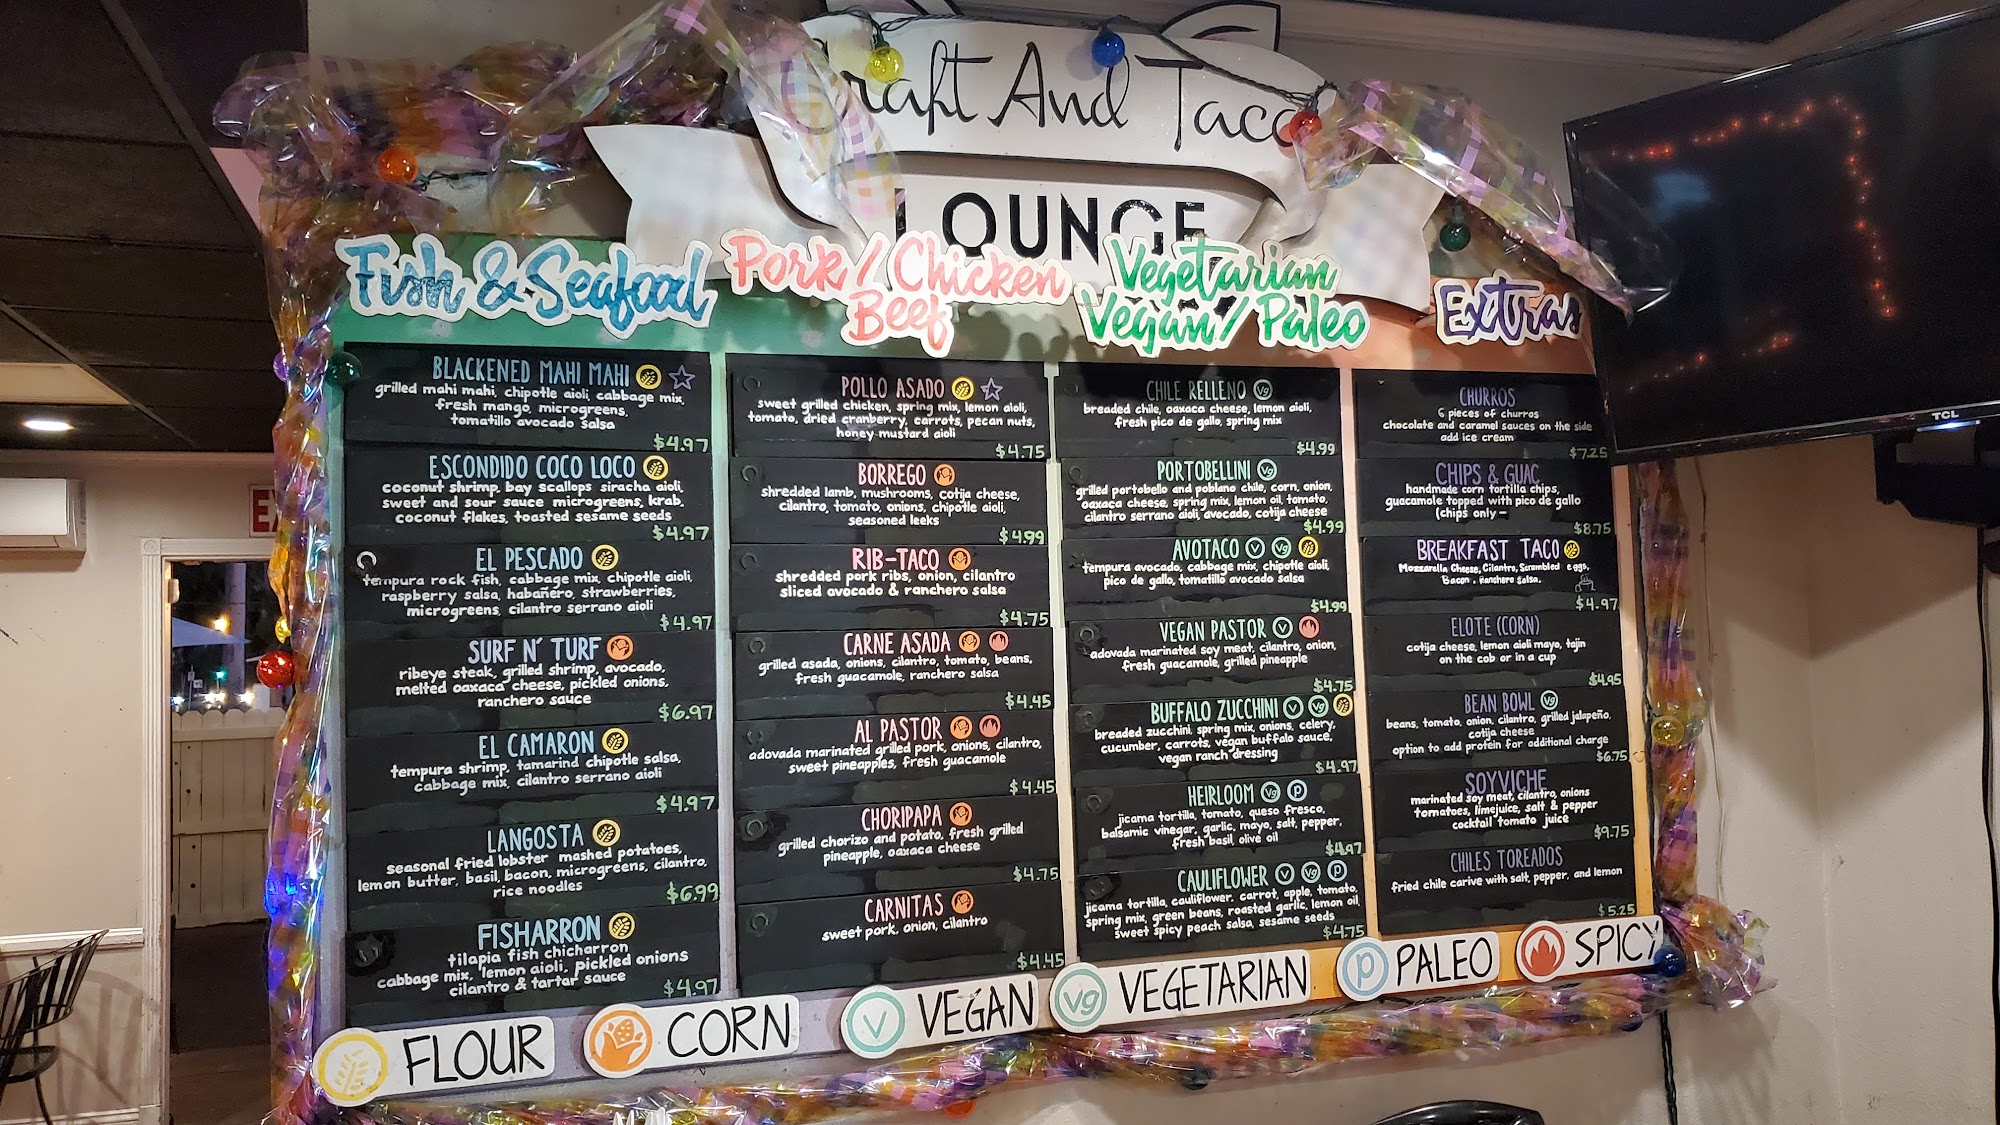 Craft And Taco
LOUNGE
Fish & Seafood
BLACKENED MAHI MAHI
grilled mahi mahi, chipotle aioli, cabbage mix,
fresh mango, microgreens,
tomatillo avocado salsa
$4.97
ESCONDIDO COCO LOCO
coconut shrimp, bay scallops siracha aioli,
sweet and sour sauce microgreens, krab,
coconut flakes, toasted sesame seeds
$4.97
EL PESCADO
tempura rock fish, cabbage mix, chipotle aioli,
raspberry salsa, habañero, strawberries,
microgreens, cilantro serrano aioli
$4.97
SURF N' TURF
ribeye steak, grilled shrimp, avocado,
melted oaxaca cheese, pickled onions,
ranchero sauce
$6.97
EL CAMARON
tempura shrimp, tamarind chipotle salsa,
cabbage mix, cilantro serrano aioli
$4.97
LANGOSTA
seasonal fried lobster mashed potatoes,
lemon butter, basil, bacon, microgreens, cilantro,
rice noodles
$6.99
FISHARRON
tilapia fish chicharron
cabbage mix, lemon aioli, pickled onions
cilantro & tartar sauce
$4.97
Pork / Chicken
Beef
POLLO ASADO
sweet grilled chicken, spring mix, lemon aioli,
tomato, dried cranberry, carrots, pecan nuts,
honey mustard aioli
$4.75
BORREGO
shredded lamb, mushrooms, cotija cheese,
cilantro, tomato, onions, chipotle aioli,
seasoned leeks
$4.99
RIB-TACO
shredded pork ribs, onion, cilantro
sliced avocado & ranchero salsa
$4.75
CARNE ASADA
grilled asada, onions, cilantro, tomato, beans,
fresh guacamole, ranchero salsa
$4.45
AL PASTOR
adovada marinated grilled pork, onions, cilantro,
sweet pineapples, fresh guacamole
$4.45
CHORIPAPA
grilled chorizo and potato, fresh grilled
pineapple, oaxaca cheese
$4.75
CARNITAS
sweet pork, onion, cilantro
$4.45
Vegetarian
Vegan / Paleo
CHILE RELLENO Vg
breaded chile, oaxaca cheese, lemon aioli,
fresh pico de gallo, spring mix
$4.99
PORTOBELLINI Vg
grilled portobello and poblano chile, corn, onion,
oaxaca cheese, spring mix, lemon oil, tomato,
cilantro serrano aioli, avocado, cotija cheese
$4.99
AVOTACO V Vg
tempura avocado, cabbage mix, chipotle aioli,
pico de gallo, tomatillo avocado salsa
$4.99
VEGAN PASTOR V
adovada marinated soy meat, cilantro, onion,
fresh guacamole, grilled pineapple
$4.75
BUFFALO ZUCCHINI V Vg
breaded zucchini, spring mix, onions, celery,
cucumber, carrots, vegan buffalo sauce,
vegan ranch dressing
$4.97
HEIRLOOM Vg P
jicama tortilla, tomato, queso fresco,
balsamic vinegar, garlic, mayo, salt, pepper,
fresh basil, olive oil
$4.97
CAULIFLOWER V Vg P
jicama tortilla, cauliflower, carrot, apple, tomato,
spring mix, green beans, roasted garlic, lemon oil,
sweet spicy peach salsa, sesame seeds
$4.75
Extras
CHURROS
6 pieces of churros
chocolate and caramel sauces on the side
add ice cream
$7.25
CHIPS & GUAC
handmade corn tortilla chips,
guacamole topped with pico de gallo
(chips only -
$8.75
BREAKFAST TACO
Mozzarella Cheese, Cilantro, Scrambled eggs,
Bacon, Ranchero Salsa.
$4.97
ELOTE (CORN)
cotija cheese, lemon aioli mayo, tajin
on the cob or in a cup
$4.95
BEAN BOWL Vg
beans, tomato, onion, cilantro, grilled jalapeño,
cotija cheese
option to add protein for additional charge
$6.75
SOYVICHE
marinated soy meat, cilantro, onions
tomatoes, limejuice, salt & pepper
cocktail tomato juice
$9.75
CHILES TOREADOS
fried chile carive with salt, pepper, and lemon
$5.25
FLOUR
CORN
V VEGAN
Vg VEGETARIAN
P PALEO
SPICY
TCL